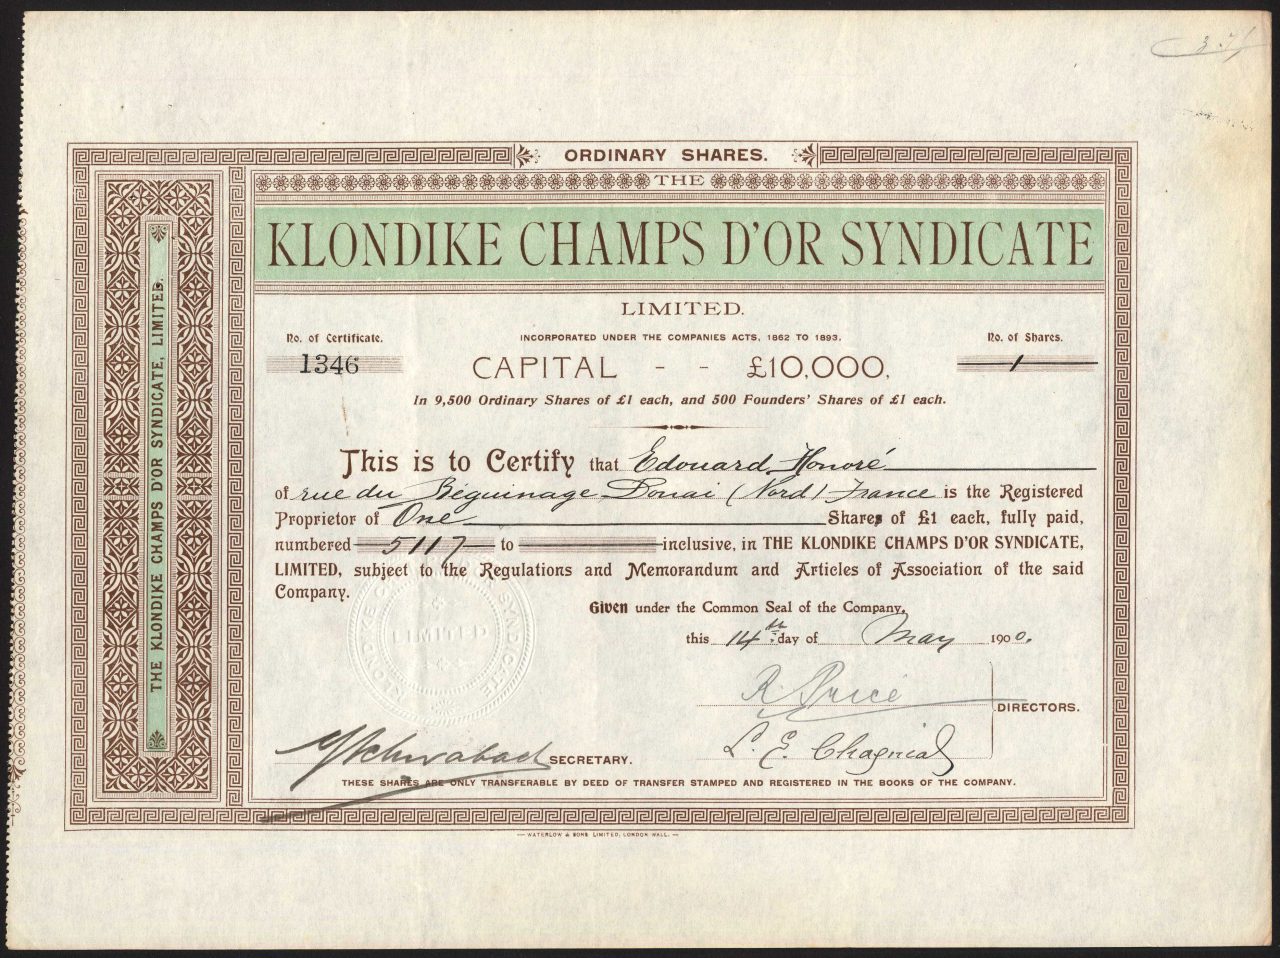 ORDINARY SHARES.
THE
KLONDIKE CHAMPS D'OR SYNDICATE
LIMITED.
No. of Certificate.
INCORPORATED UNDER THE COMPANIES ACTS, 1862 TO 1893.
No. of Shares.
1346
CAPITAL - - £10,000,
1
In 9,500 Ordinary Shares of £1 each, and 500 Founders' Shares of £1 each.
This is to Certify that Edouard Honoré
of rue du Béguinage Douai (Nord) France is the Registered
Proprietor of One Shares of £1 each, fully paid,
numbered 5117 to inclusive, in THE KLONDIKE CHAMPS D'OR SYNDICATE,
LIMITED, subject to the Regulations and Memorandum and Articles of Association of the said
Company.
Given under the Common Seal of the Company,
this 14th day of May 1900.
R. Price
DIRECTORS.
L. E. Chagnial
SECRETARY.
THESE SHARES ARE ONLY TRANSFERABLE BY DEED OF TRANSFER STAMPED AND REGISTERED IN THE BOOKS OF THE COMPANY.
WATERLOW & SONS LIMITED, LONDON WALL.
THE KLONDIKE CHAMPS D'OR SYNDICATE, LIMITED.
KLONDIKE CHAMPS D'OR SYNDICATE
LIMITED